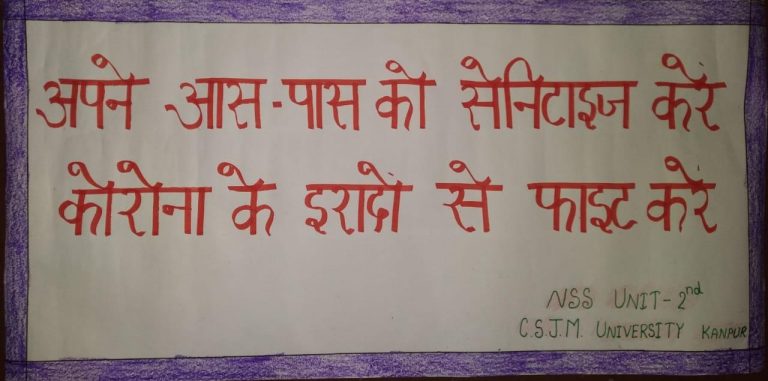 अपने आस-पास को सेनिटाइज करें
कोरोना के इरादों से फाइट करें
NSS UNIT-2nd
C.S.J.M. UNIVERSITY KANPUR